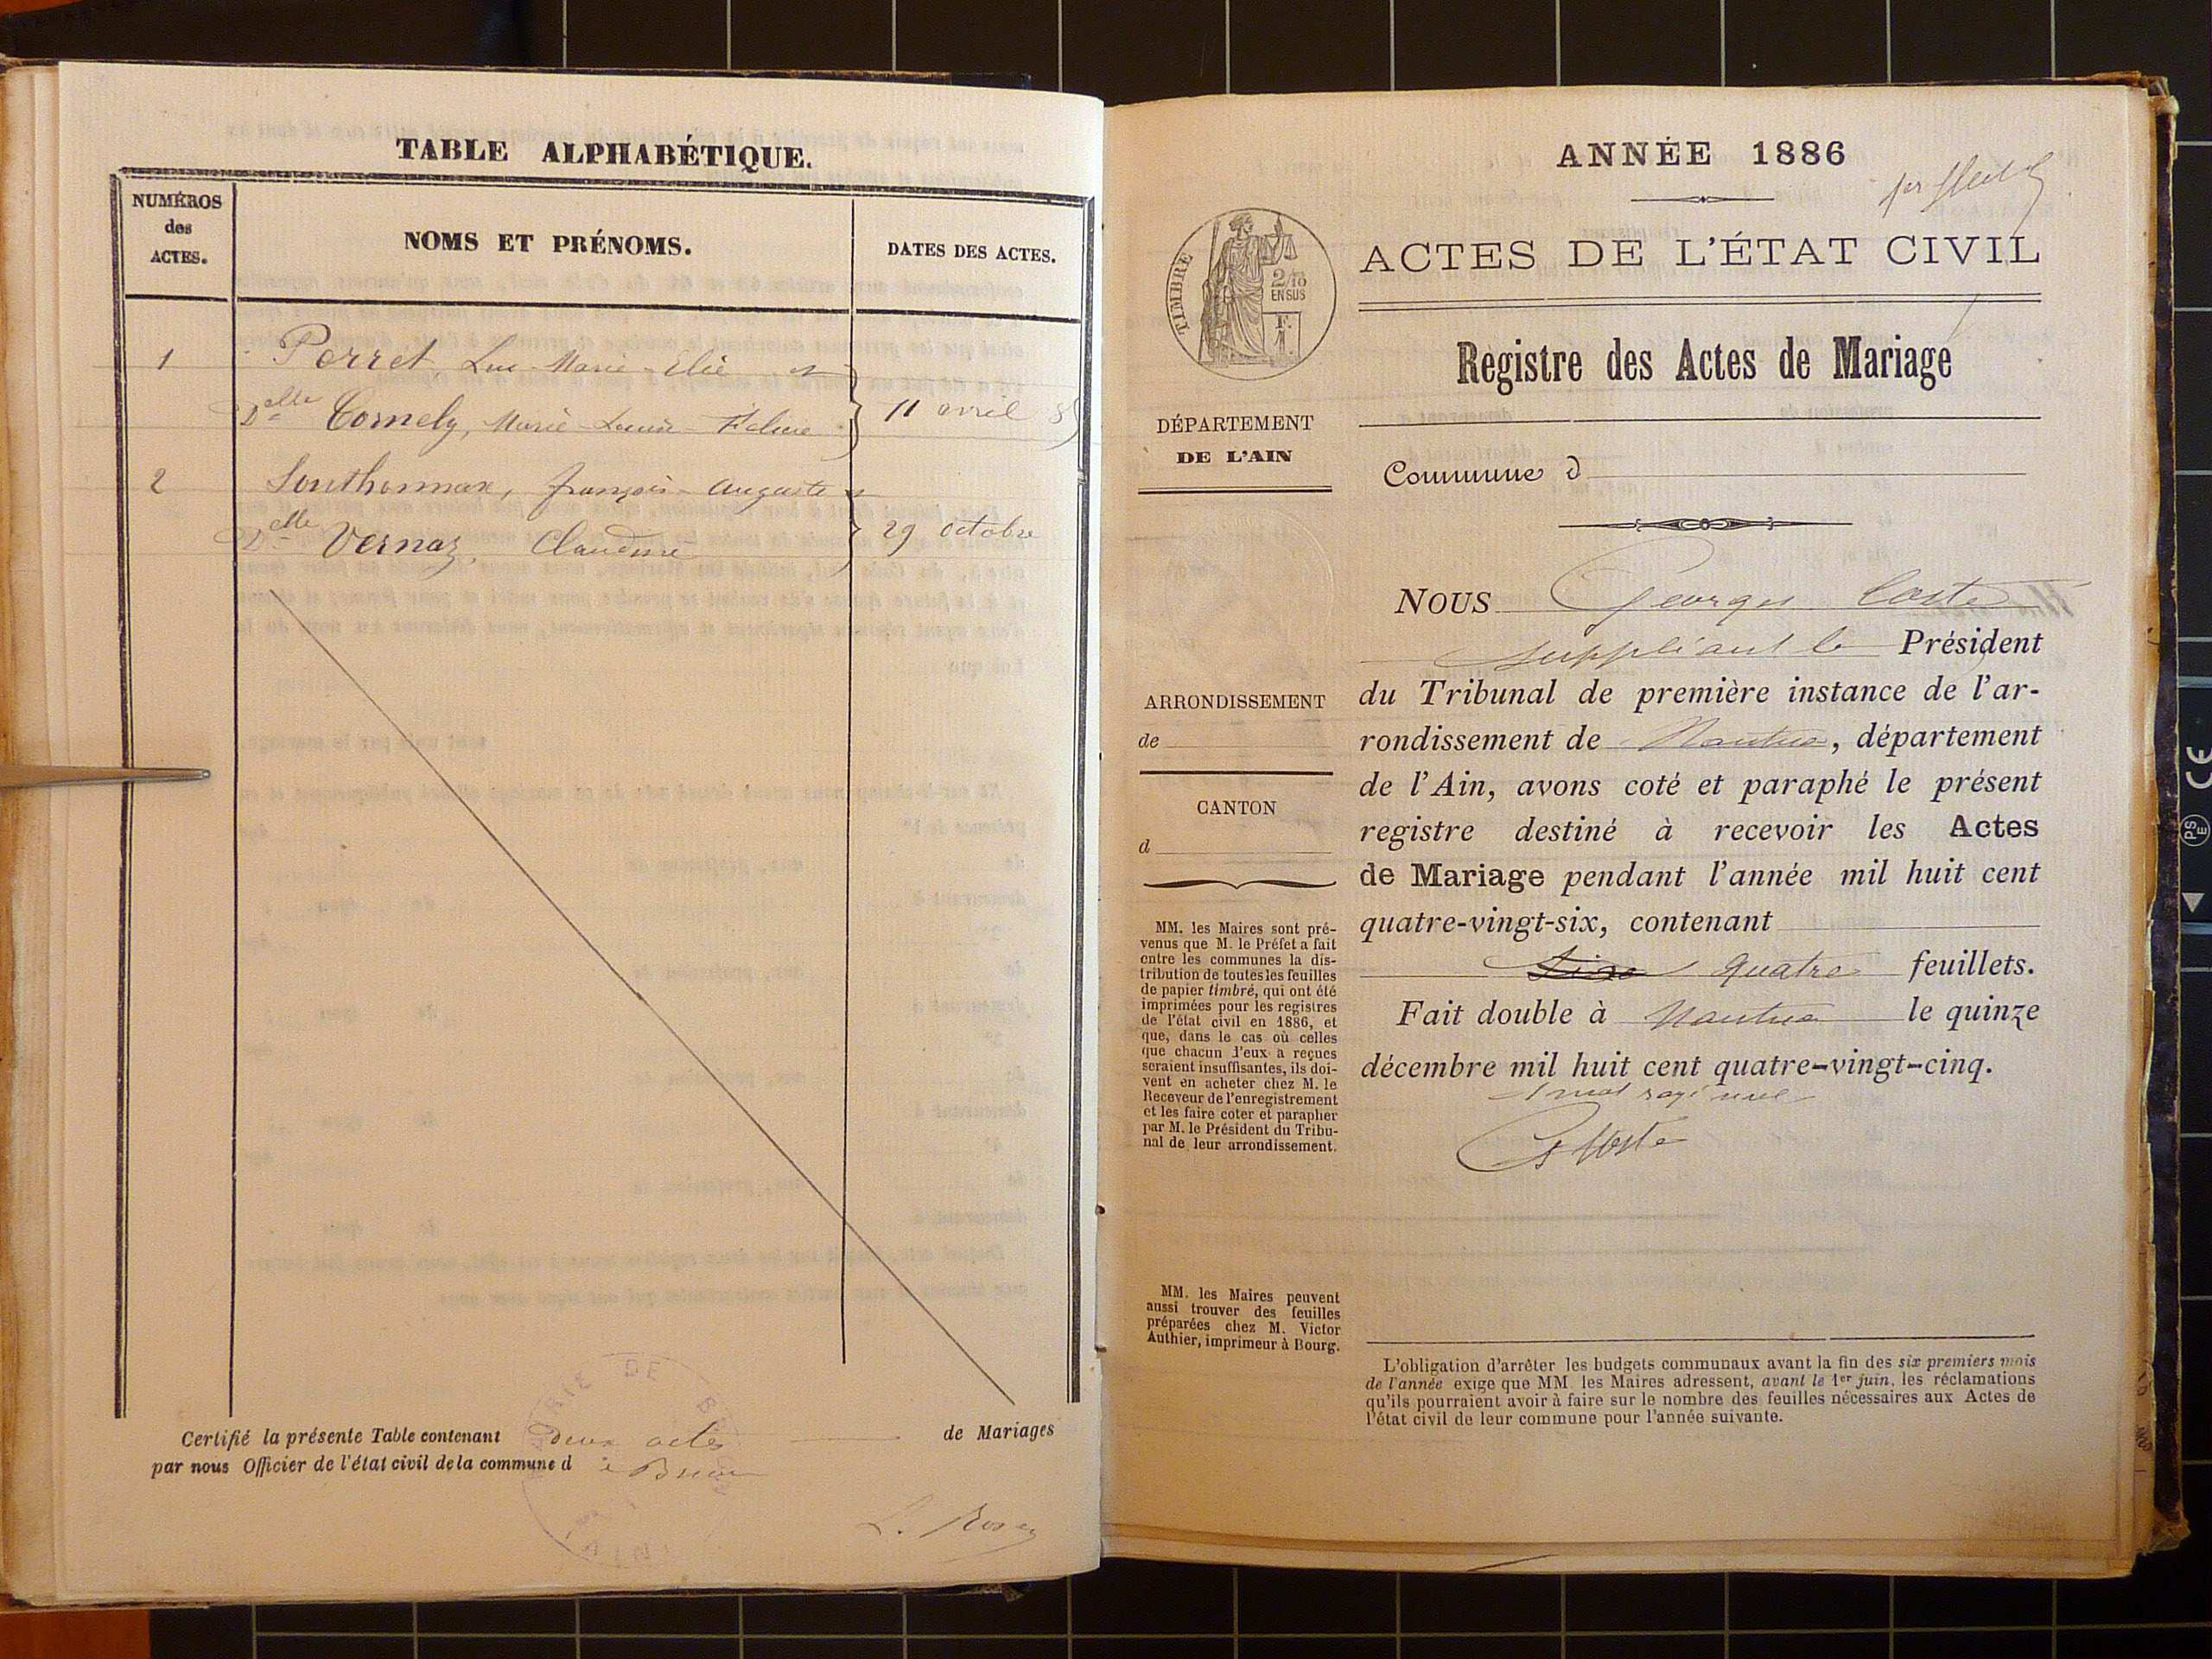 TABLE ALPHABÉTIQUE.
NUMÉROS
des
ACTES.
NOMS ET PRÉNOMS.
DATES DES ACTES.
1 Perret Luc-Marie-Elie et
Delle Cornely, Marie-Louise-Féline 11 avril 85
2 Sonthonnax, françois-auguste et
Delle Vernaz, Claudine 29 octobre
Certifié la présente Table contenant deux actes de Mariages
par nous Officier de l'état civil de la commune d
MAIRIE DE
(AIN)
ANNÉE 1886
1er feuillet
TIMBRE
2/10
EN SUS
ACTES DE L'ÉTAT CIVIL
Registre des Actes de Mariage
DÉPARTEMENT
DE L'AIN
Commune d
ARRONDISSEMENT
de
CANTON
d
MM. les Maires sont pré-
venus que M. le Préfet a fait
entre les communes la dis-
tribution de toutes les feuilles
de papier timbré, qui ont été
imprimées pour les registres
de l'état civil en 1886, et
que, dans le cas où celles
que chacun d'eux a reçues
seraient insuffisantes, ils doi-
vent en acheter chez M. le
Receveur de l'enregistrement
et les faire coter et parapher
par M. le Président du Tribu-
nal de leur arrondissement.
MM. les Maires peuvent
aussi trouver des feuilles
préparées chez M. Victor
Authier, imprimeur à Bourg.
NOUS Georges Coste
suppléant le Président
du Tribunal de première instance de l'ar-
rondissement de Nantua, département
de l'Ain, avons coté et paraphé le présent
registre destiné à recevoir les Actes
de Mariage pendant l'année mil huit cent
quatre-vingt-six, contenant
quatre feuillets.
Fait double à Nantua le quinze
décembre mil huit cent quatre-vingt-cinq.
1 mot rayé nul
G Coste
L'obligation d'arrêter les budgets communaux avant la fin des six premiers mois
de l'année exige que MM. les Maires adressent, avant le 1er juin, les réclamations
qu'ils pourraient avoir à faire sur le nombre des feuilles nécessaires aux Actes de
l'état civil de leur commune pour l'année suivante.
PS
E
CE